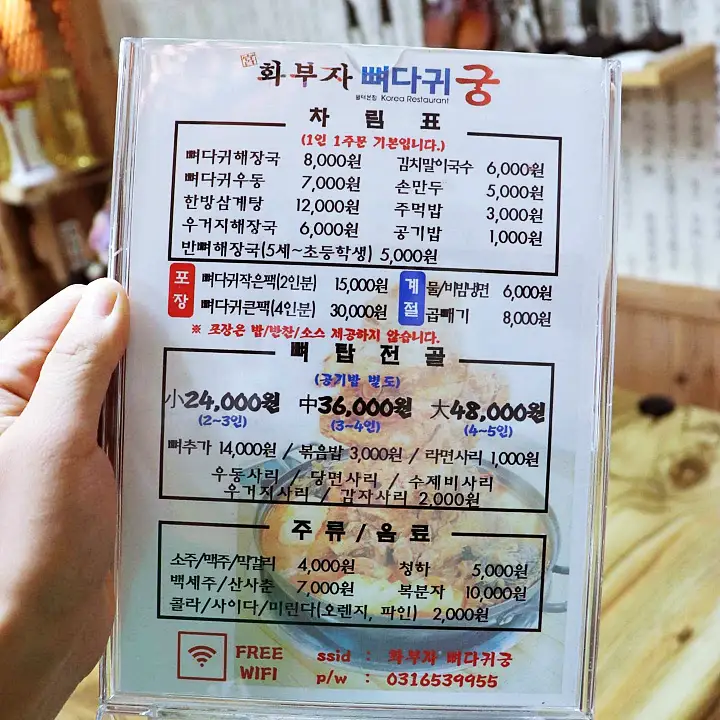 화부자 뼈다귀궁
쉴터본점 Korea Restaurant
차 림 표
(1인 1주문 기본입니다.)
뼈다귀해장국 8,000원 김치말이국수 6,000원
뼈다귀우동 7,000원 손만두 5,000원
한방삼계탕 12,000원 주먹밥 3,000원
우거지해장국 6,000원 공기밥 1,000원
반뼈해장국(5세~초등학생) 5,000원
포장 뼈다귀작은팩(2인분) 15,000원 계절 물/비빔냉면 6,000원
뼈다귀큰팩(4인분) 30,000원 곱빼기 8,000원
※ 포장은 밥/반찬/소스 제공하지 않습니다.
뼈 탑 전 골
(공기밥 별도)
小24,000원 中36,000원 大48,000원
(2~3인) (3~4인) (4~5인)
뼈추가 14,000원 / 볶음밥 3,000원 / 라면사리 1,000원
우동사리 / 당면사리 / 수제비사리
우거지사리 / 감자사리 2,000원
주류/음료
소주/맥주/막걸리 4,000원 청하 5,000원
백세주/산사춘 7,000원 복분자 10,000원
콜라/사이다/미린다(오렌지, 파인) 2,000원
FREE WIFI
ssid : 화부자 뼈다귀궁
p/w : 0316539955